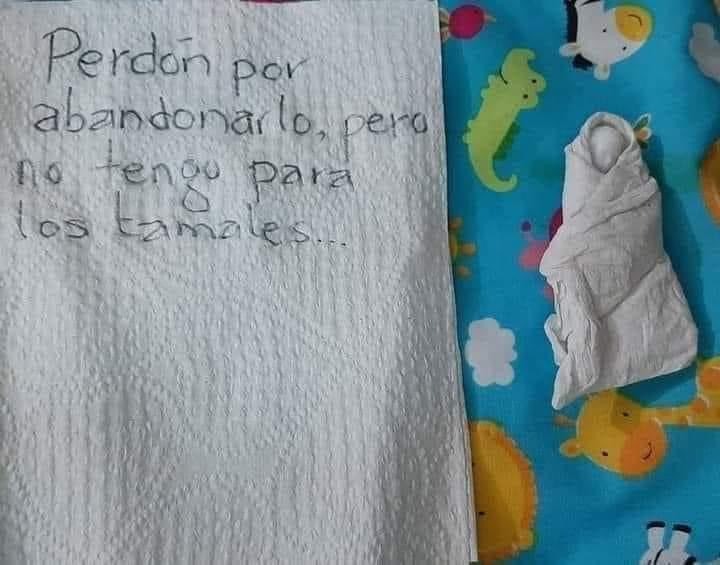 Perdón por
abandonarlo, pero
no tengo para
los tamales...